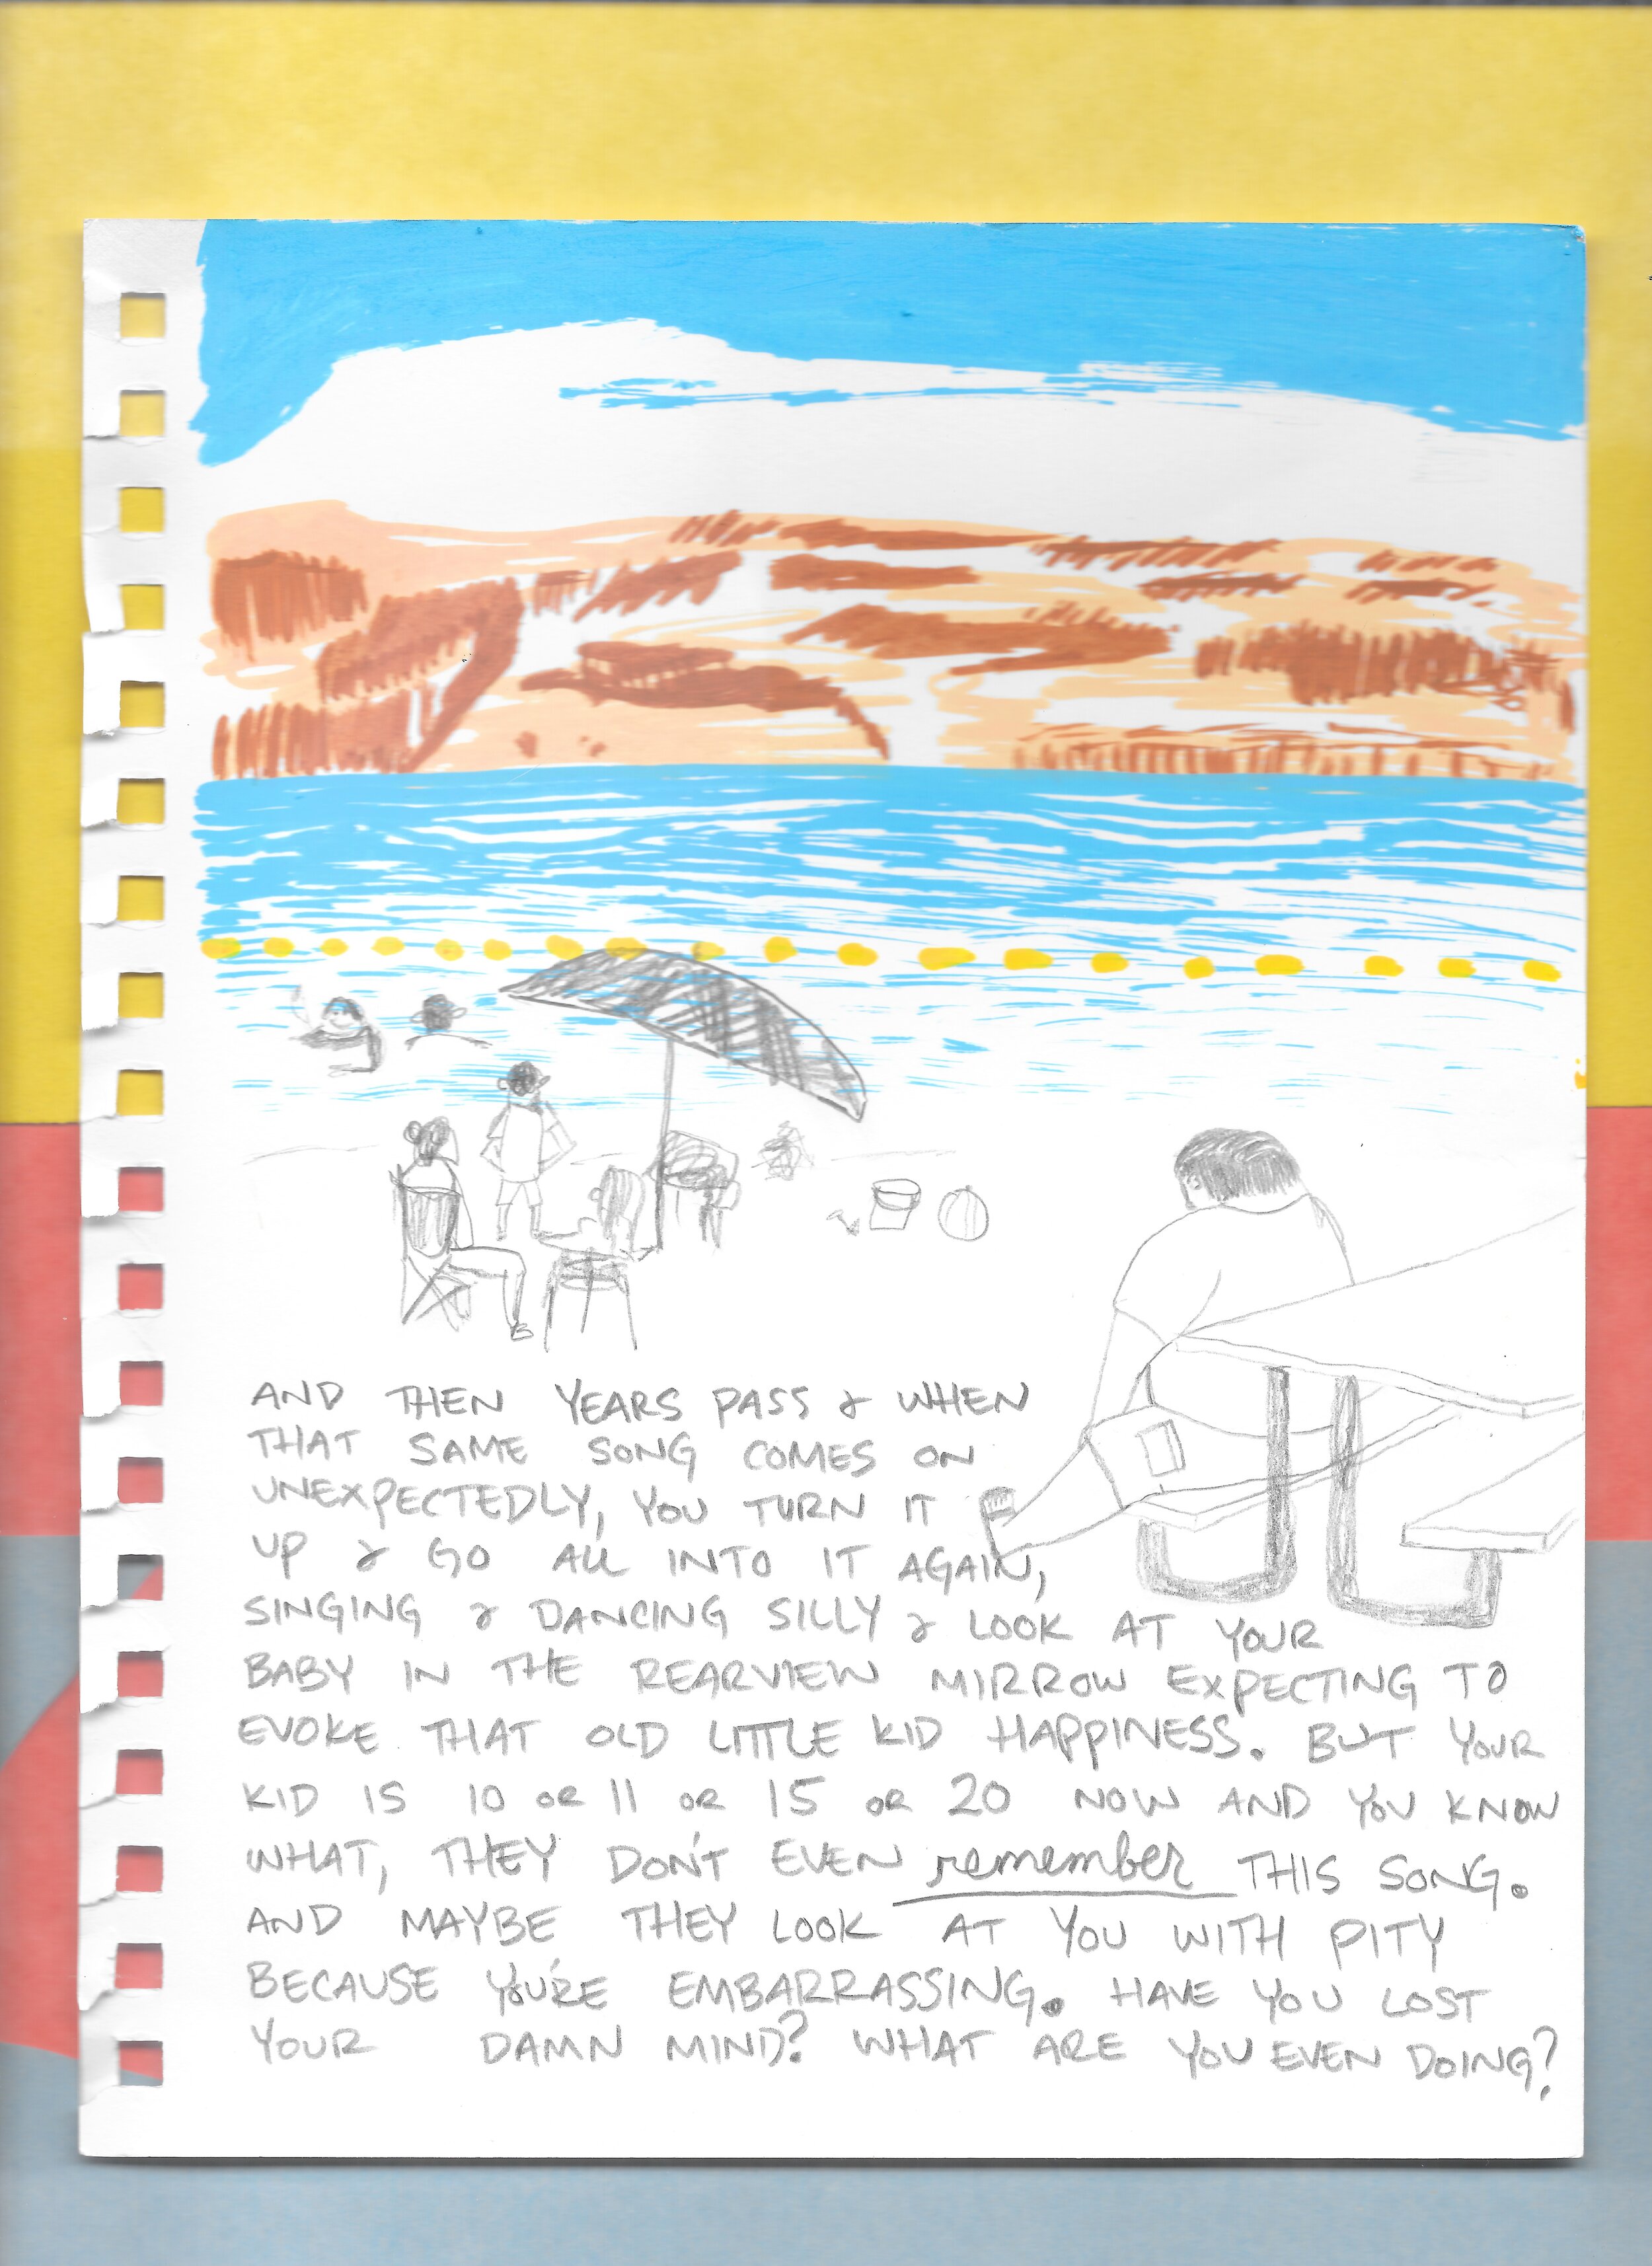 AND THEN YEARS PASS & WHEN
THAT SAME SONG COMES ON
UNEXPECTEDLY, YOU TURN IT
UP & GO ALL INTO IT AGAIN,
SINGING & DANCING SILLY & LOOK AT YOUR
BABY IN THE REARVIEW MIRROW EXPECTING TO
EVOKE THAT OLD LITTLE KID HAPPINESS. BUT YOUR
KID IS 10 OR 11 OR 15 OR 20 NOW AND YOU KNOW
WHAT, THEY DON'T EVEN remember THIS SONG.
AND MAYBE THEY LOOK AT YOU WITH PITY
BECAUSE YOU'RE EMBARRASSING. HAVE YOU LOST
YOUR DAMN MIND? WHAT ARE YOU EVEN DOING?